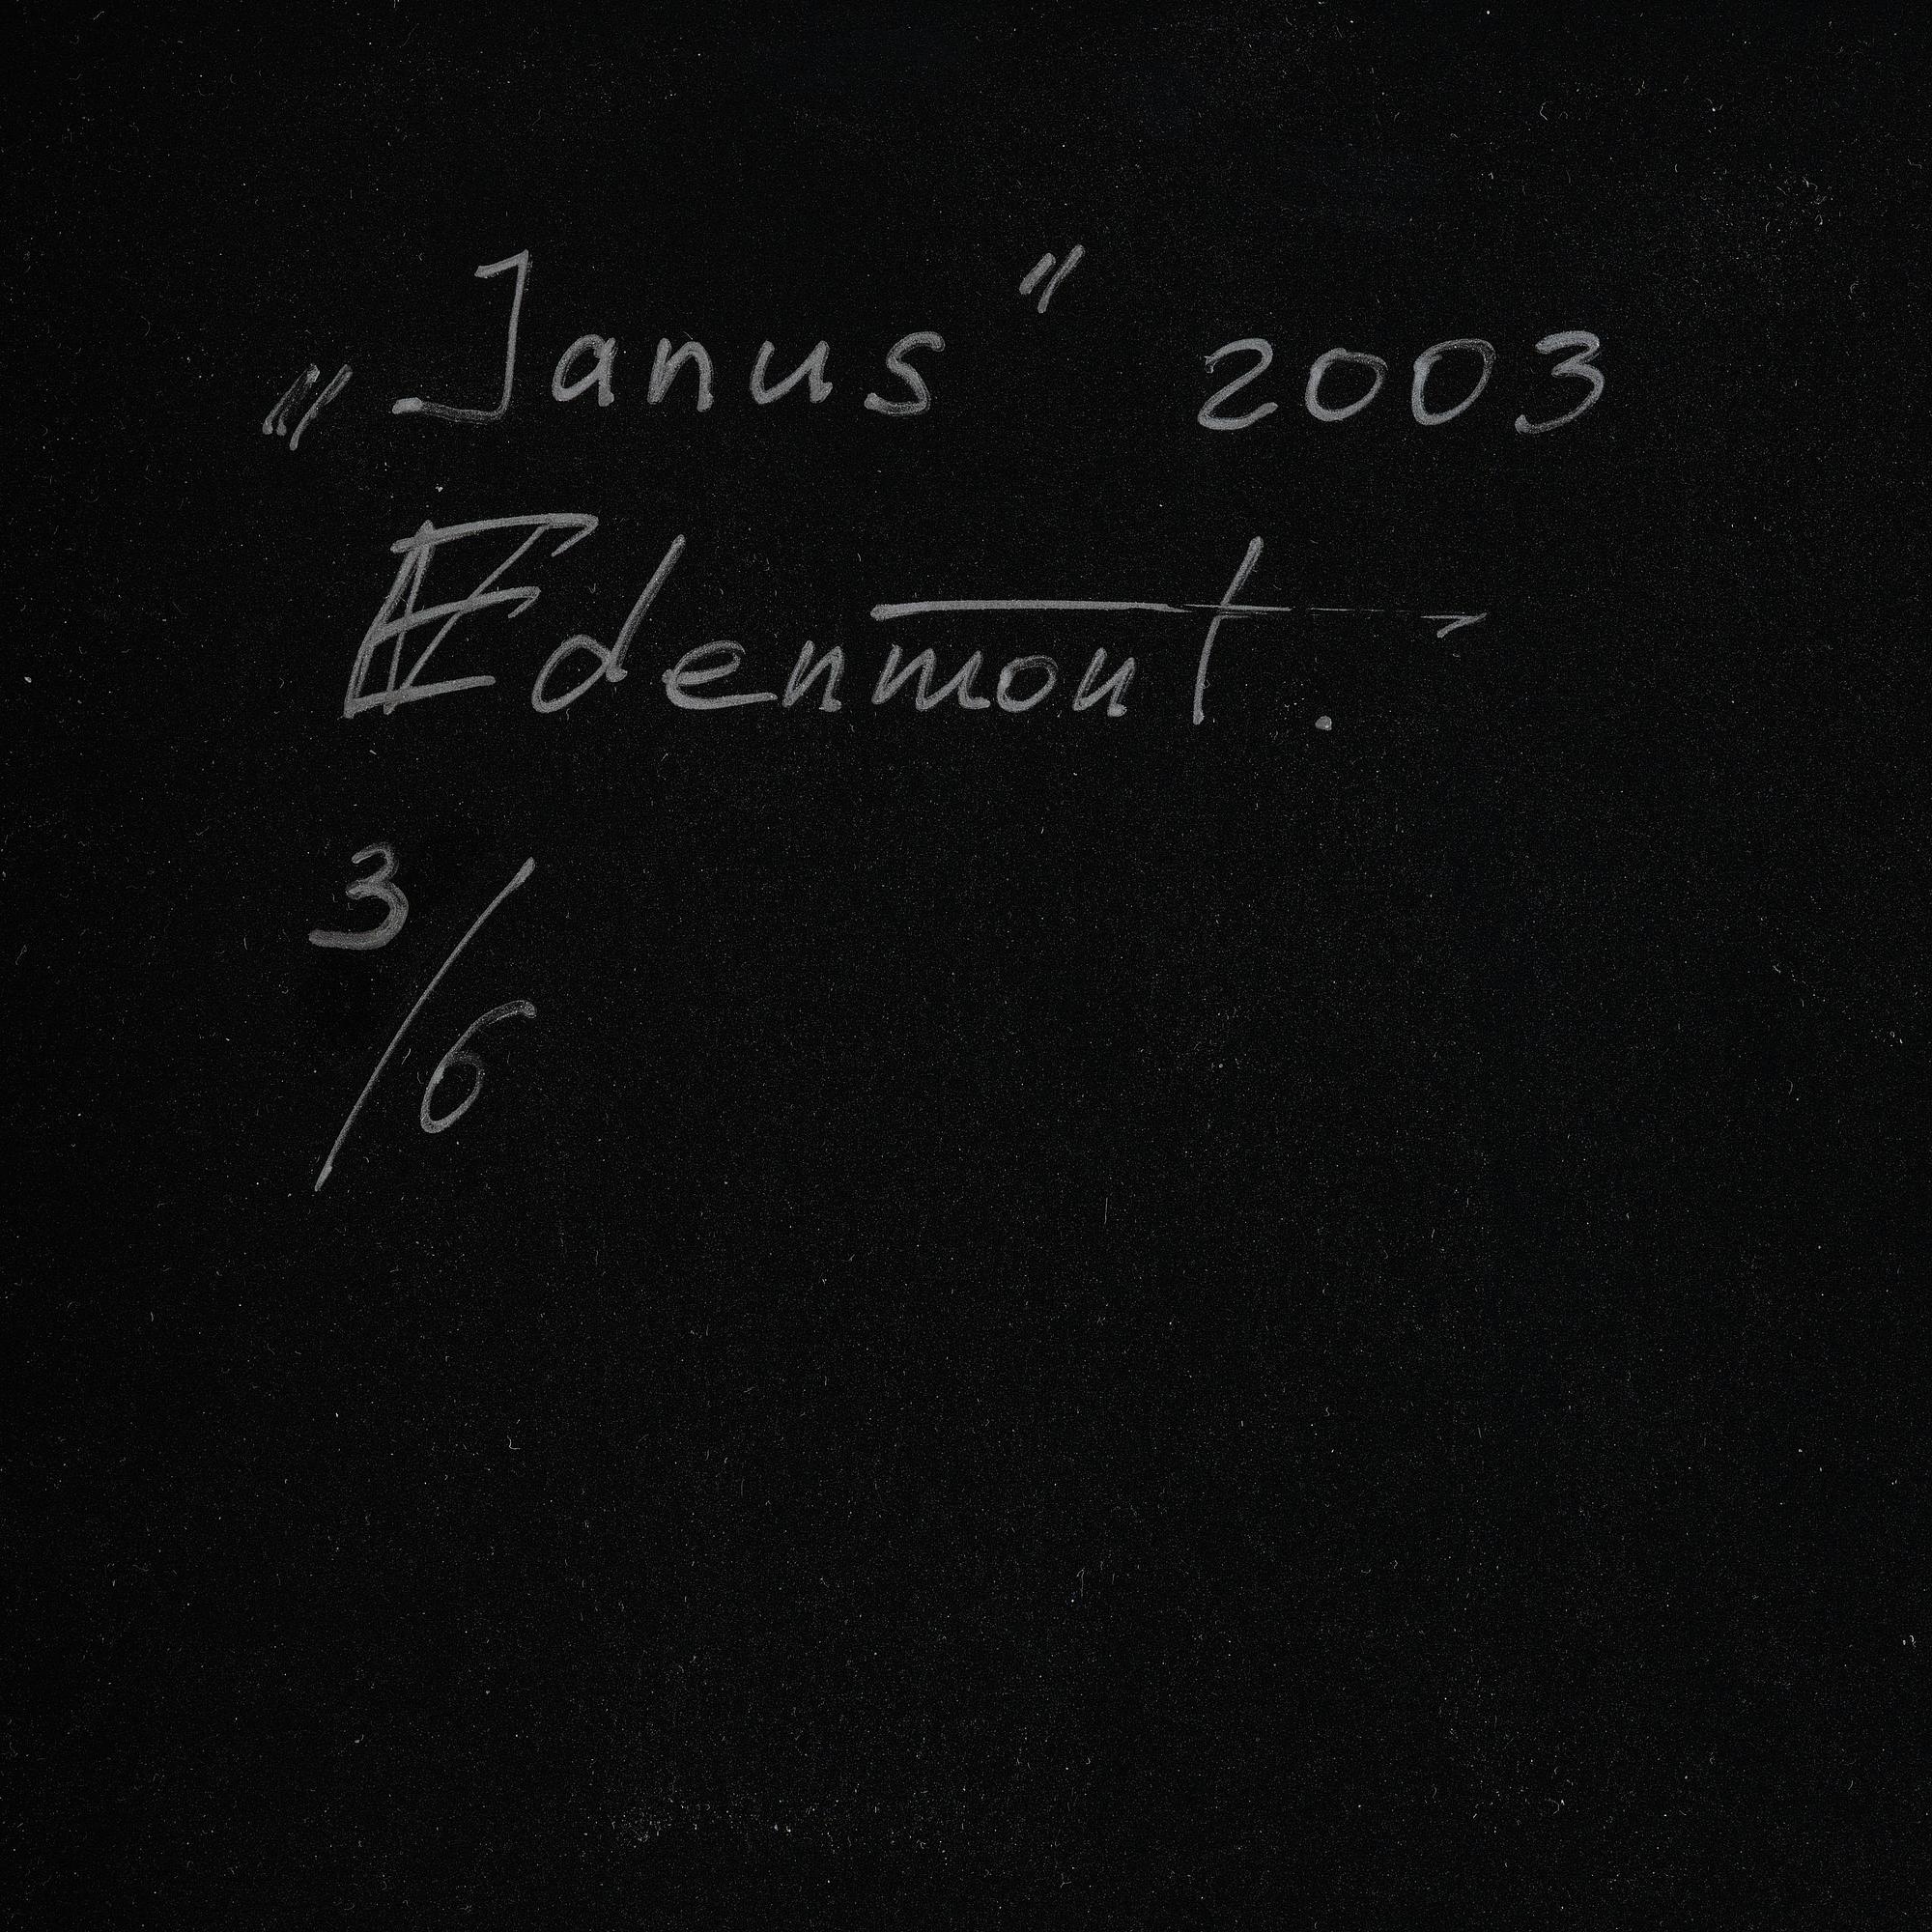 „Janus" 2003
Edenmont.
3/6